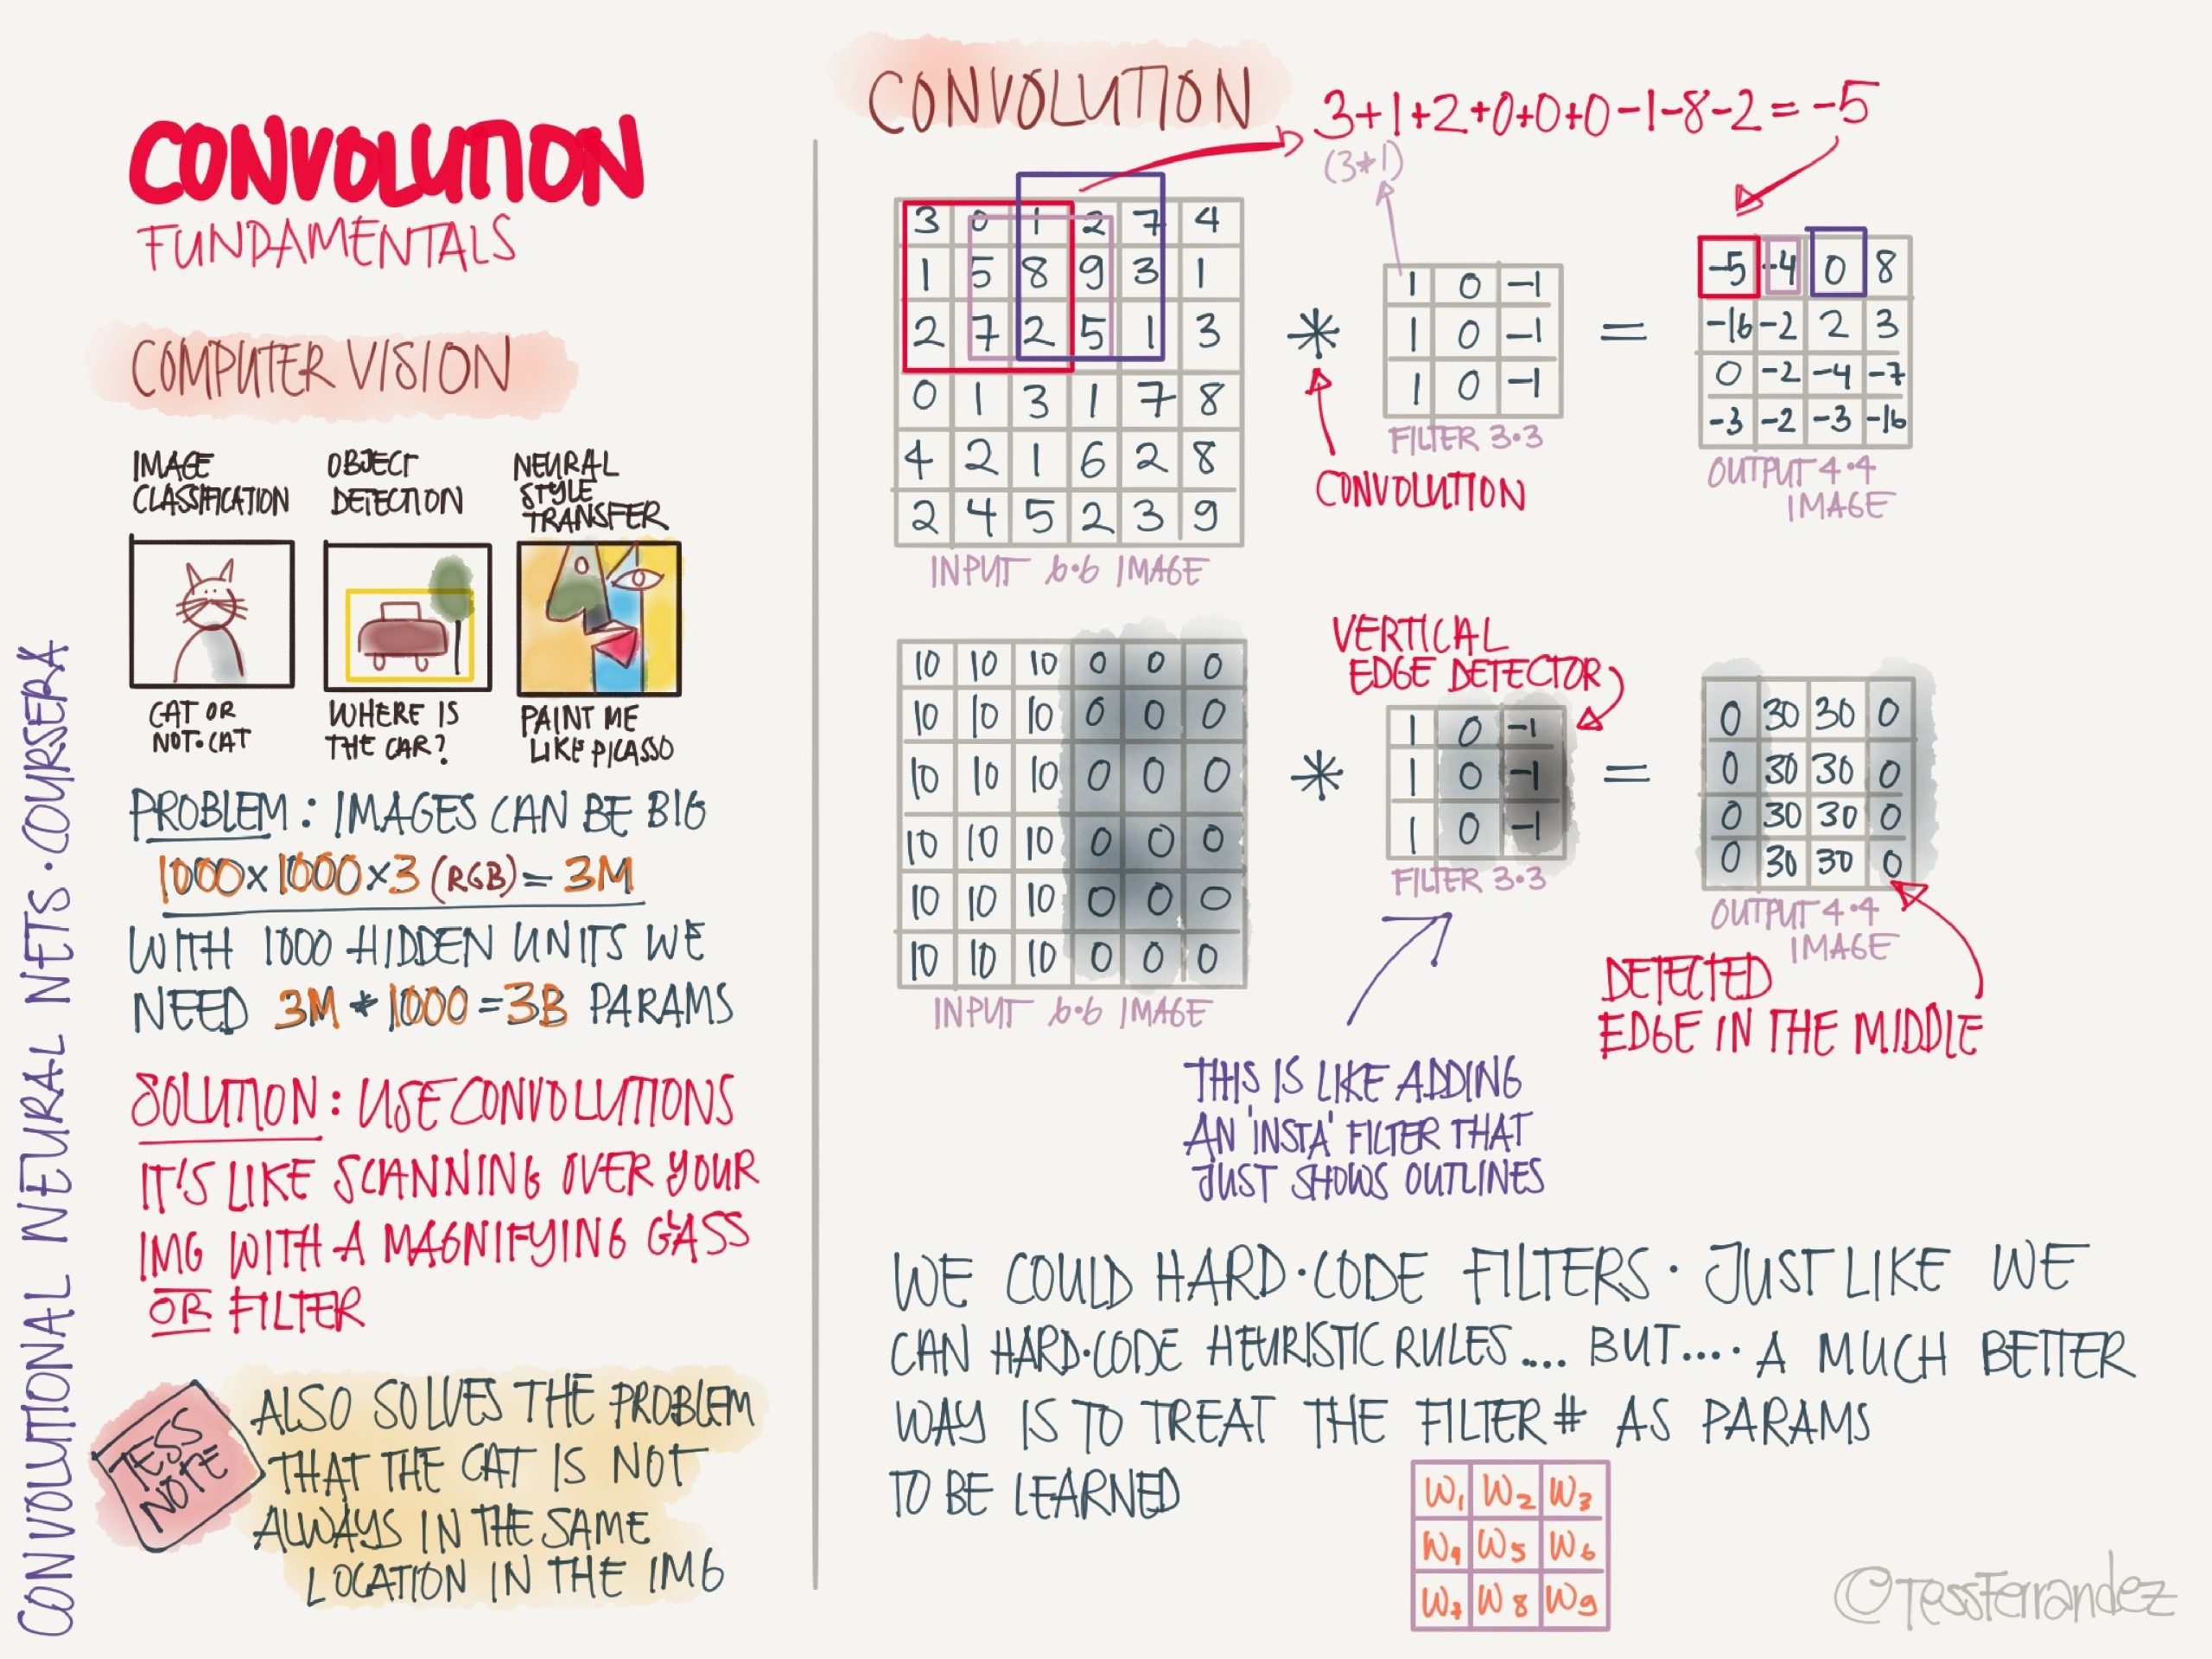 CONVOLUTIONAL NEURAL NETS · COURSERA
CONVOLUTION
FUNDAMENTALS
COMPUTER VISION
IMAGE
CLASSIFICATION
CAT OR
NOT·CAT
OBJECT
DETECTION
WHERE IS
THE CAR?
NEURAL
STYLE
TRANSFER
PAINT ME
LIKE PICASSO
PROBLEM: IMAGES CAN BE BIG
1000x1000x3 (RGB) = 3M
WITH 1000 HIDDEN UNITS WE
NEED 3M * 1000 = 3B PARAMS
SOLUTION: USE CONVOLUTIONS
IT'S LIKE SCANNING OVER YOUR
IMG WITH A MAGNIFYING GLASS
OR FILTER
TESS
NOTE
ALSO SOLVES THE PROBLEM
THAT THE CAT IS NOT
ALWAYS IN THE SAME
LOCATION IN THE IMG
CONVOLUTION
3+1+2+0+0+0-1-8-2 = -5
(3*1)
3 0 1 2 7 4
1 5 8 9 3 1
2 7 2 5 1 3
0 1 3 1 7 8
4 2 1 6 2 8
2 4 5 2 3 9
INPUT 6·6 IMAGE
*
CONVOLUTION
1 0 -1
1 0 -1
1 0 -1
FILTER 3·3
=
-5 -4 0 8
-16 -2 2 3
0 -2 -4 -7
-3 -2 -3 -16
OUTPUT 4·4
IMAGE
10 10 10 0 0 0
10 10 10 0 0 0
10 10 10 0 0 0
10 10 10 0 0 0
10 10 10 0 0 0
10 10 10 0 0 0
INPUT 6·6 IMAGE
*
VERTICAL
EDGE DETECTOR
1 0 -1
1 0 -1
1 0 -1
FILTER 3·3
=
0 30 30 0
0 30 30 0
0 30 30 0
0 30 30 0
OUTPUT 4·4
IMAGE
DETECTED
EDGE IN THE MIDDLE
THIS IS LIKE ADDING
AN 'INSTA' FILTER THAT
JUST SHOWS OUTLINES
WE COULD HARD·CODE FILTERS · JUST LIKE WE
CAN HARD·CODE HEURISTIC RULES... BUT.... A MUCH BETTER
WAY IS TO TREAT THE FILTER # AS PARAMS
TO BE LEARNED
W1 W2 W3
W4 W5 W6
W7 W8 W9
©TessFerrandez